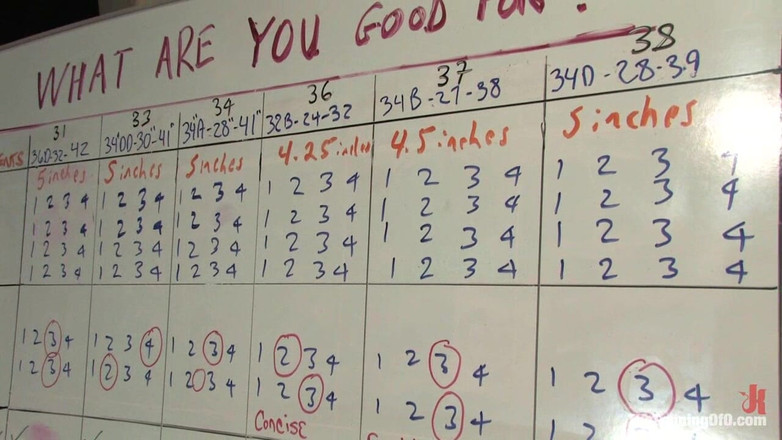 WHAT ARE YOU GOOD FOR?
31 33 34 36 37 38
36D-32-42 34DD-30"-41" 34"A-28"-41" 32B-24-32 34B-27-38 34D-28-39
5inches 5inches 5inches 4.25inches 4.5inches 5inches
1 2 3 4 1 2 3 4 1 2 3 4 1 2 3 4 1 2 3 4 1 2 3 4
1 2 3 4 1 2 3 4 1 2 3 4 1 2 3 4 1 2 3 4 1 2 3 4
1 2 3 4 1 2 3 4 1 2 3 4 1 2 3 4 1 2 3 4 1 2 3 4
1 2 3 4 1 2 3 4 1 2 3 4 1 2 3 4 1 2 3 4 1 2 3 4
1 2 3 4 1 2 3 4 1 2 3 4 1 2 3 4 1 2 3 4 1 2 3 4
1 2 3 4 1 2 3 4 1 2 0 3 4 1 2 3 4 1 2 3 4 1 2
Concise